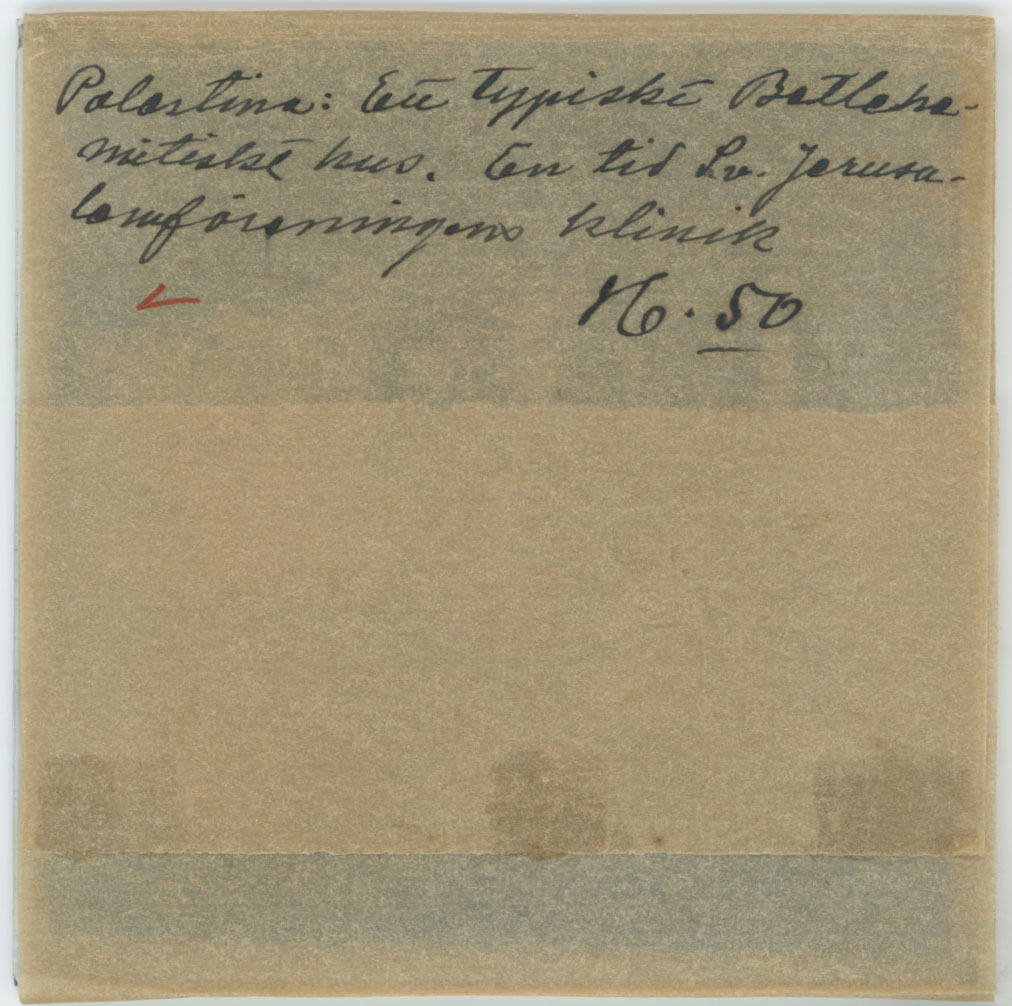 Palæstina: Ett typiskt Betlehe-
mitiskt hus. En tid Sv. Jerusa-
lemföreningens klinik
N. 50